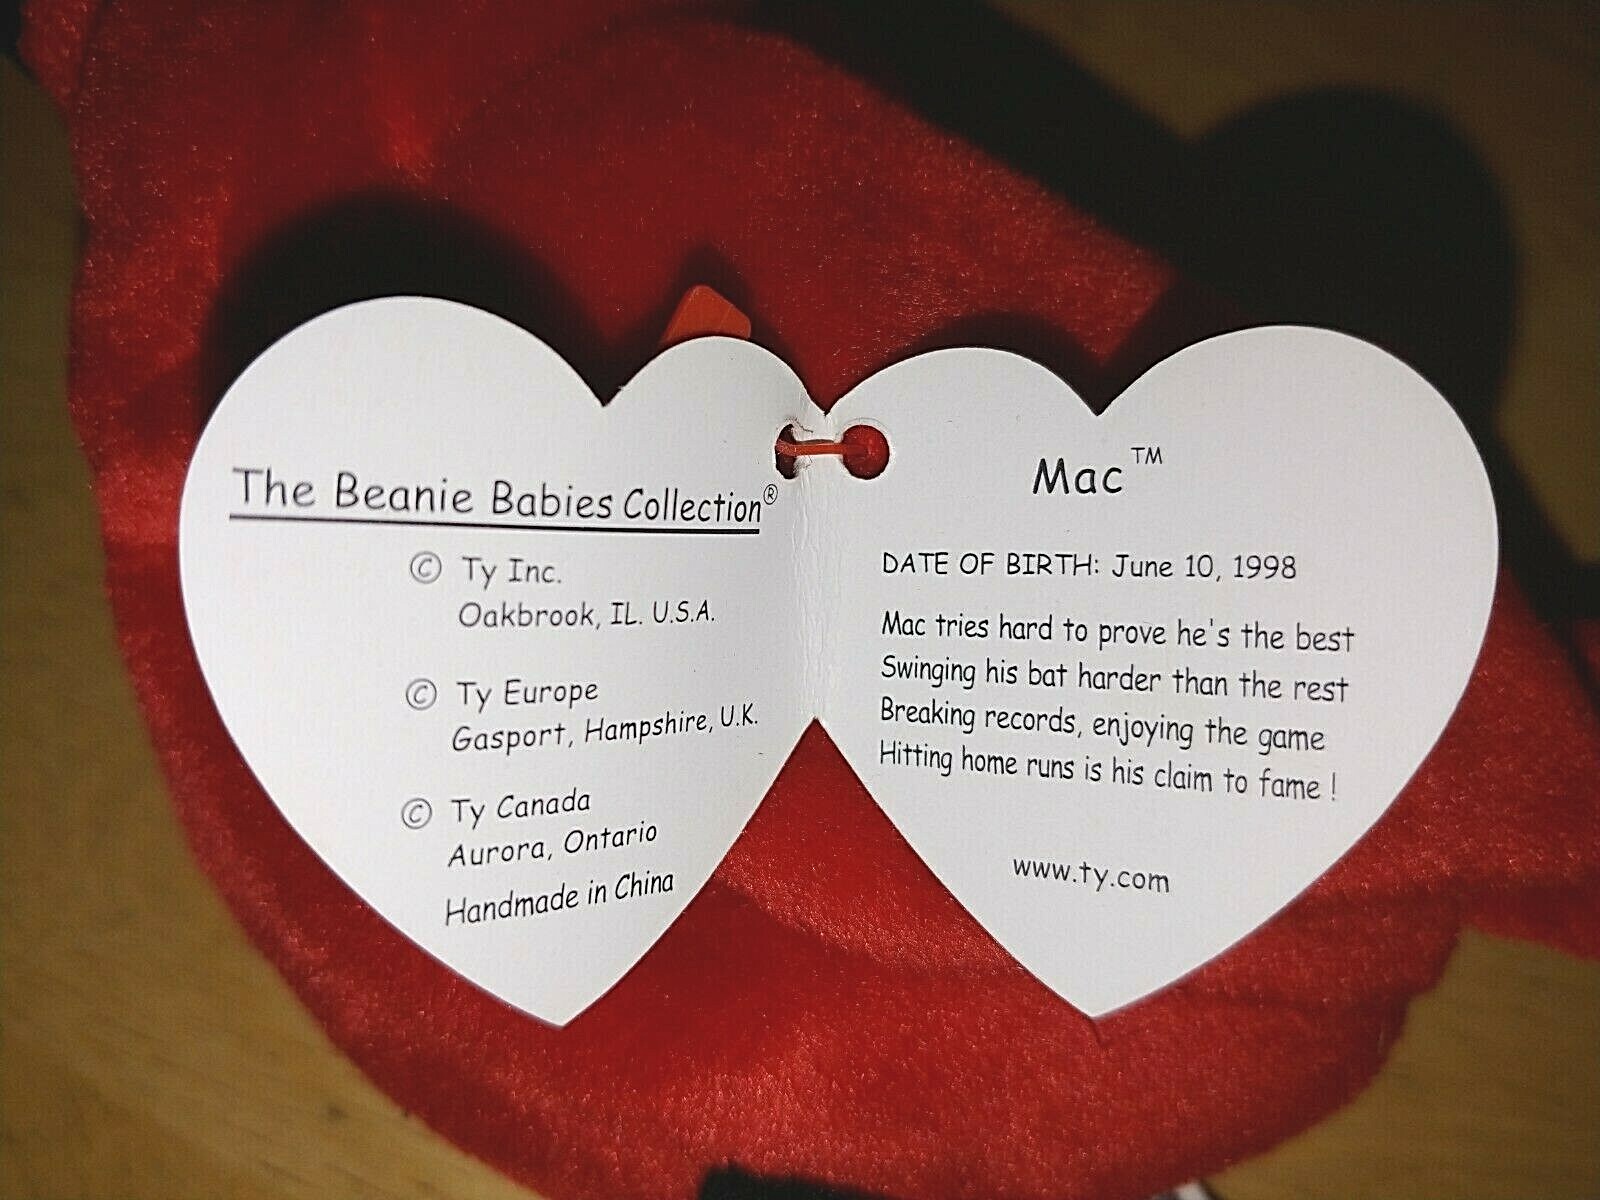 The Beanie Babies Collection®
© Ty Inc.
Oakbrook, IL. U.S.A.
© Ty Europe
Gasport, Hampshire, U.K.
© Ty Canada
Aurora, Ontario
Handmade in China
Mac™
DATE OF BIRTH: June 10, 1998
Mac tries hard to prove he's the best
Swinging his bat harder than the rest
Breaking records, enjoying the game
Hitting home runs is his claim to fame !
www.ty.com